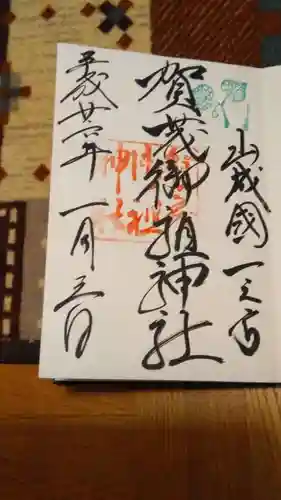 山城國一之宮
賀茂御祖神社
平成廿六年一月三日